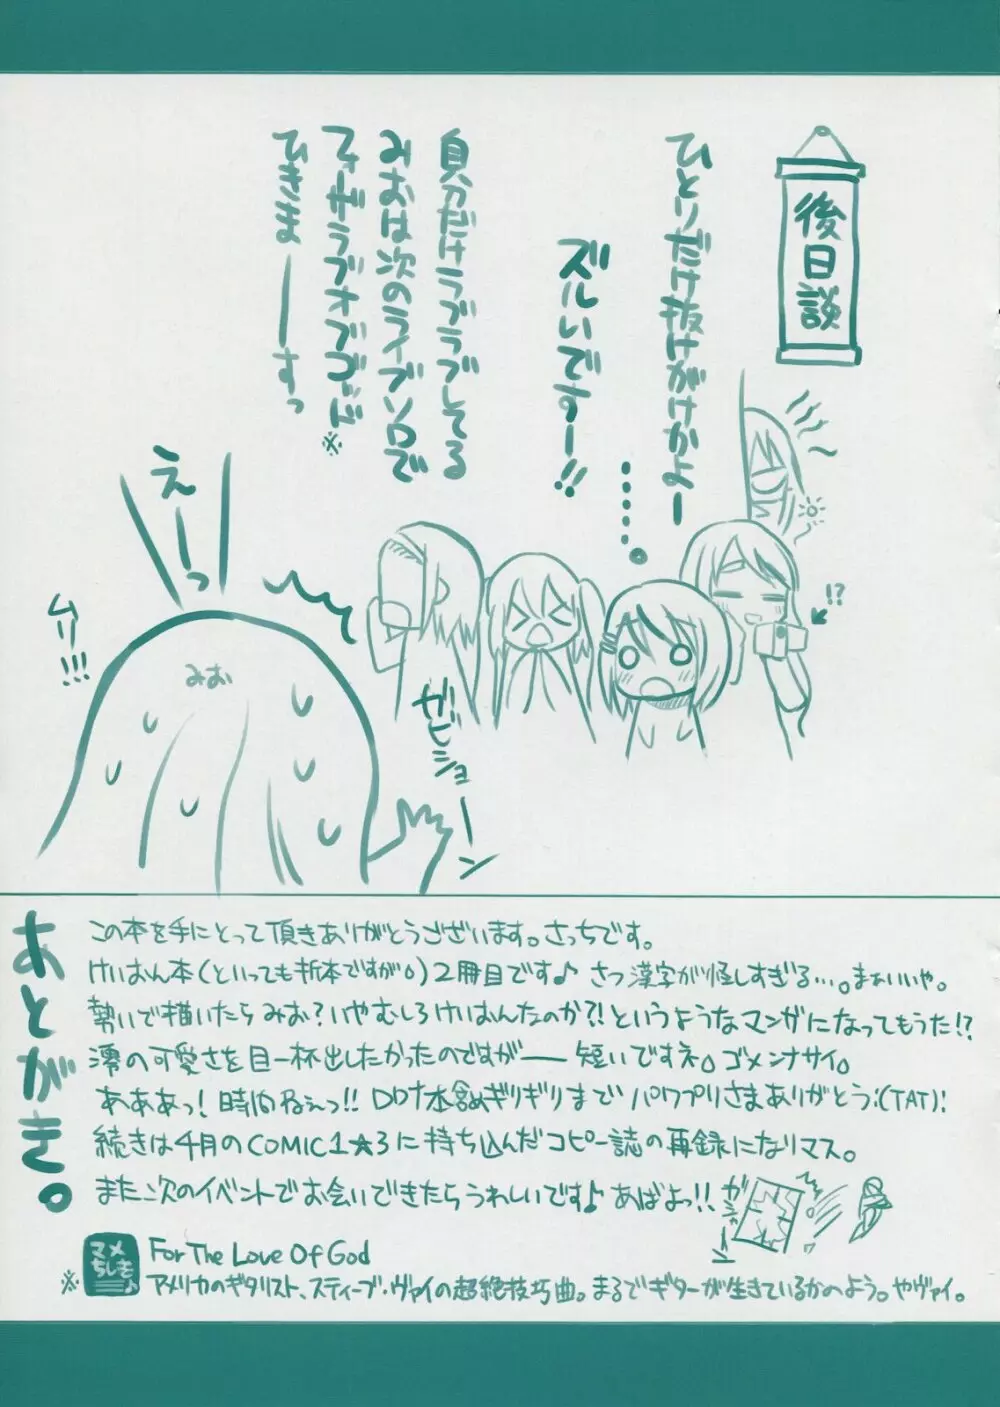 後日談
ひとりだけ抜けがけかよー
ズルいですー!!
自分だけラブラブしてる
みおは次のライブソロで
フォーザラブオブゴッド※
ひきまーーーすっ
!?
えーっ
ムリ!!!
みお
ガビショーン
あとがき。
この本を手にとって頂きありがとうございます。さっちです。
けいおん本(といっても折本ですが。)2冊目です♪ さっ漢字が怪しすぎる…。まぁいいや。
勢いで描いたらみお?いやむしろけいおんなのか?!というようなマンガになってもうた!?
澪の可愛さを目一杯出したかったのですがー 短いですネ。ゴメンナサイ。
あああっ!時間ねぇっ!!
ギリギリまでパワプリさまありがとう:(TAT):
続きは4月のCOMIC1★3に持ち込んだコピー誌の再録になりマス。
また次のイベントでお会いできたらうれしいです♪あばよっ!!
マメちしき♪
For The Love Of God
※アメリカのギタリスト、スティーブ・ヴァイの超絶技巧曲。まるでギターが生きているかのよう。やヴァイ。